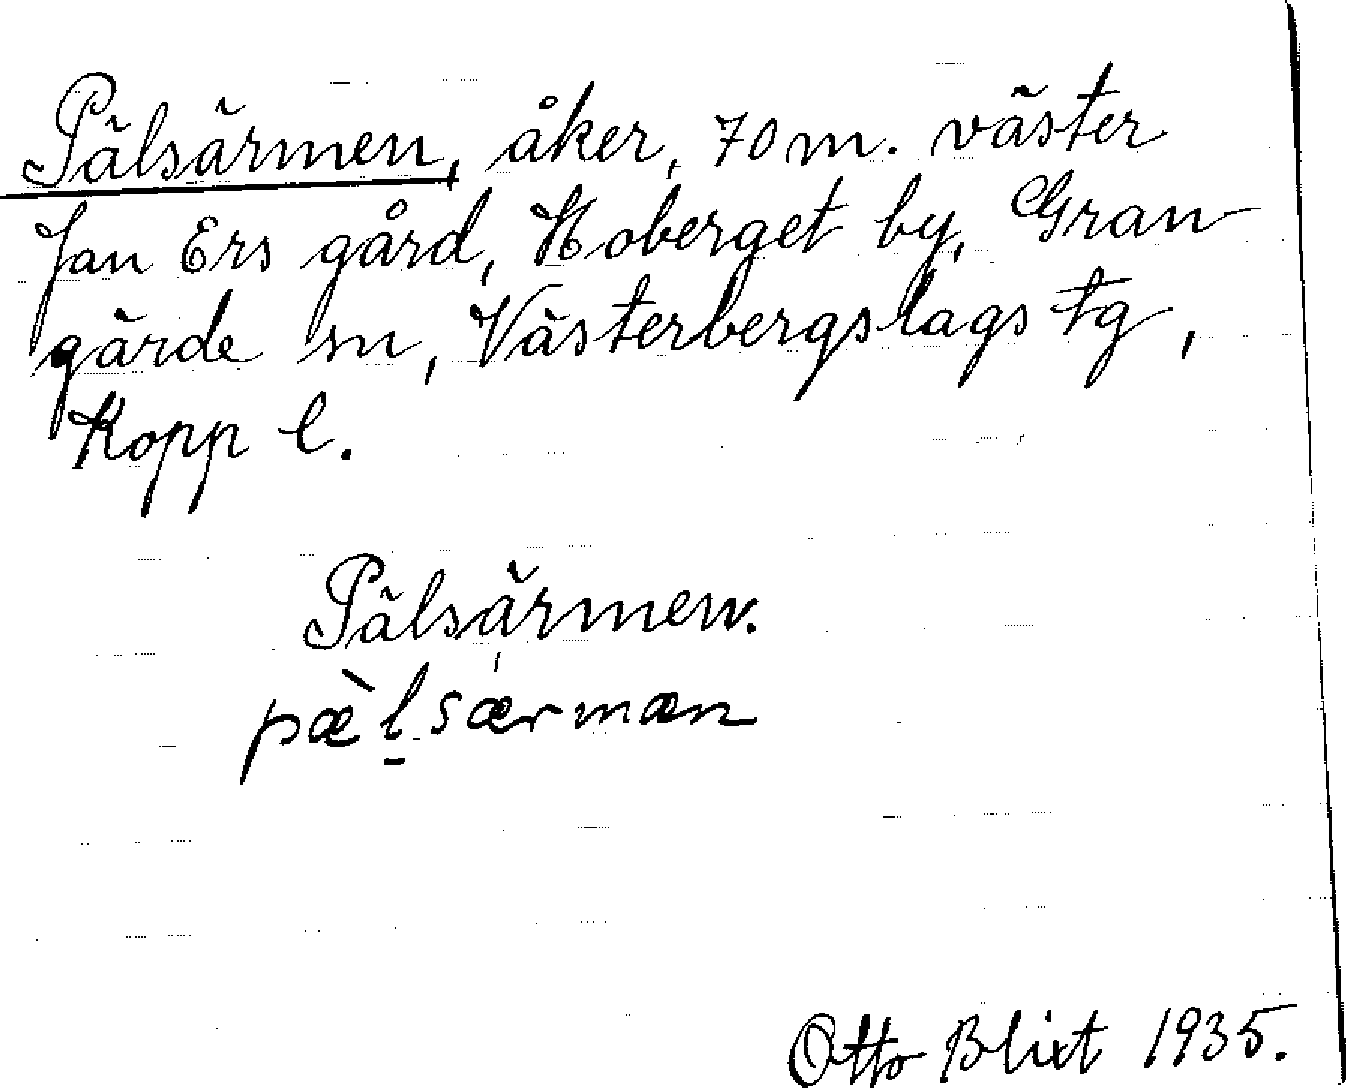 Pälsärmen, åker, 70 m. väster
Jan Ers gård, Hoberget by, Gran-
gärde sn, Västerbergslags tg,
Kopp l.
Pälsärmen.
pæ̀l̠særmæn
Otto Blixt 1935.